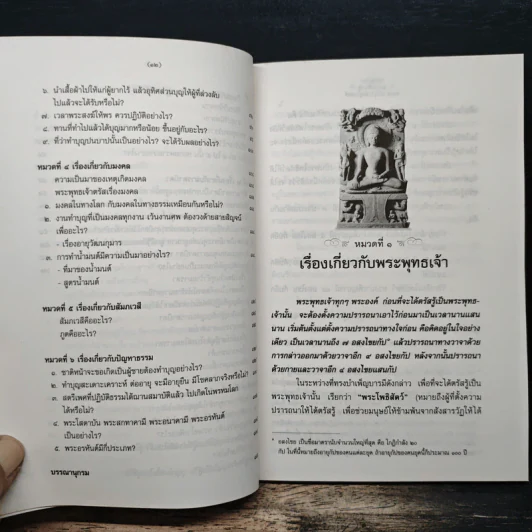 (๑๒)
๖. นำเสื้อผ้าไปให้แก่ผู้ยากไร้ แล้วอุทิศส่วนบุญให้ผู้ที่ล่วงลับ
ไปแล้วจะได้รับหรือไม่?
๗. เวลาพระสงฆ์ให้พร ควรปฏิบัติอย่างไร?
๘. ทานที่ทำไปแล้วได้บุญมากหรือน้อย ขึ้นอยู่กับอะไร?
๙. ที่ว่าทำบุญปนบาปนั้นเป็นอย่างไร? จะได้รับผลอย่างไร?
หมวดที่ ๔ เรื่องเกี่ยวกับมงคล
ความเป็นมาของเหตุเกิดมงคล
พระพุทธเจ้าตรัสเรื่องมงคล
๑. มงคลในทางโลก กับมงคลในทางธรรมเหมือนกันหรือไม่?
๒. งานทำบุญที่เป็นมงคลทุกงาน เว้นงานศพ ต้องวงด้วยสายสิญจน์
เพื่ออะไร?
- เรื่องอายุวัฒนกุมาร
๓. การทำน้ำมนต์มีความเป็นมาอย่างไร?
- ที่มาของน้ำมนต์
- สูตรน้ำมนต์
หมวดที่ ๕ เรื่องเกี่ยวกับสัมภเวสี
สัมภเวสีคืออะไร?
ภูตคืออะไร?
หมวดที่ ๖ เรื่องเกี่ยวกับปัญหาธรรม
๑. ชาติหน้าจะขอเกิดเป็นผู้ชายต้องทำบุญอย่างไร?
๒. ทำบุญสะเดาะเคราะห์ ต่ออายุ จะมีอายุยืน มีโชคลาภจริงหรือไม่?
๓. สตรีเพศที่ปฏิบัติธรรมได้ฌานสมาบัติแล้ว ไปเกิดในพรหมโลก
ได้หรือไม่?
๔. พระโสดาบัน พระสกทาคามี พระอนาคามี พระอรหันต์
เป็นอย่างไร?
๕. พระอรหันต์มีกี่ประเภท?
บรรณานุกรม
หมวดที่ ๑
เรื่องเกี่ยวกับพระพุทธเจ้า
พระพุทธเจ้าทุกๆ พระองค์ ก่อนที่จะได้ตรัสรู้เป็นพระพุทธ-
เจ้านั้น จะต้องตั้งความปรารถนาเอาไว้ก่อนมาเป็นเวลานานแสน
นาน เริ่มต้นตั้งแต่ตั้งความปรารถนาทางใจก่อน คือคิดอยู่ในใจอย่าง
เดียว เป็นเวลานานถึง ๗ อสงไขยกัป* แล้วปรารถนาทางวาจาด้วย
การกล่าวออกมาด้วยวาจาอีก ๙ อสงไขยกัป หลังจากนั้นปรารถนา
ด้วยกายและวาจาอีก ๔ อสงไขยแสนกัป
ในระหว่างที่ทรงบำเพ็ญบารมีดังกล่าว เพื่อที่จะได้ตรัสรู้เป็น
พระพุทธเจ้านั้น เรียกว่า “พระโพธิสัตว์” (หมายถึงผู้ที่ตั้งความ
ปรารถนาให้ได้ตรัสรู้ เพื่อช่วยมนุษย์ให้ข้ามพ้นจากสังสารวัฏให้ได้
* อสงไขย เป็นชื่อมาตรานับจำนวนใหญ่ที่สุด คือ โกฏิกำลัง ๒๐
กัป วันที่นี้หมายถึงอายุกัปของคนแต่ละยุค ถ้าอายุกัปของคนยุคนี้ก็ประมาณ ๑๐๐ ปี